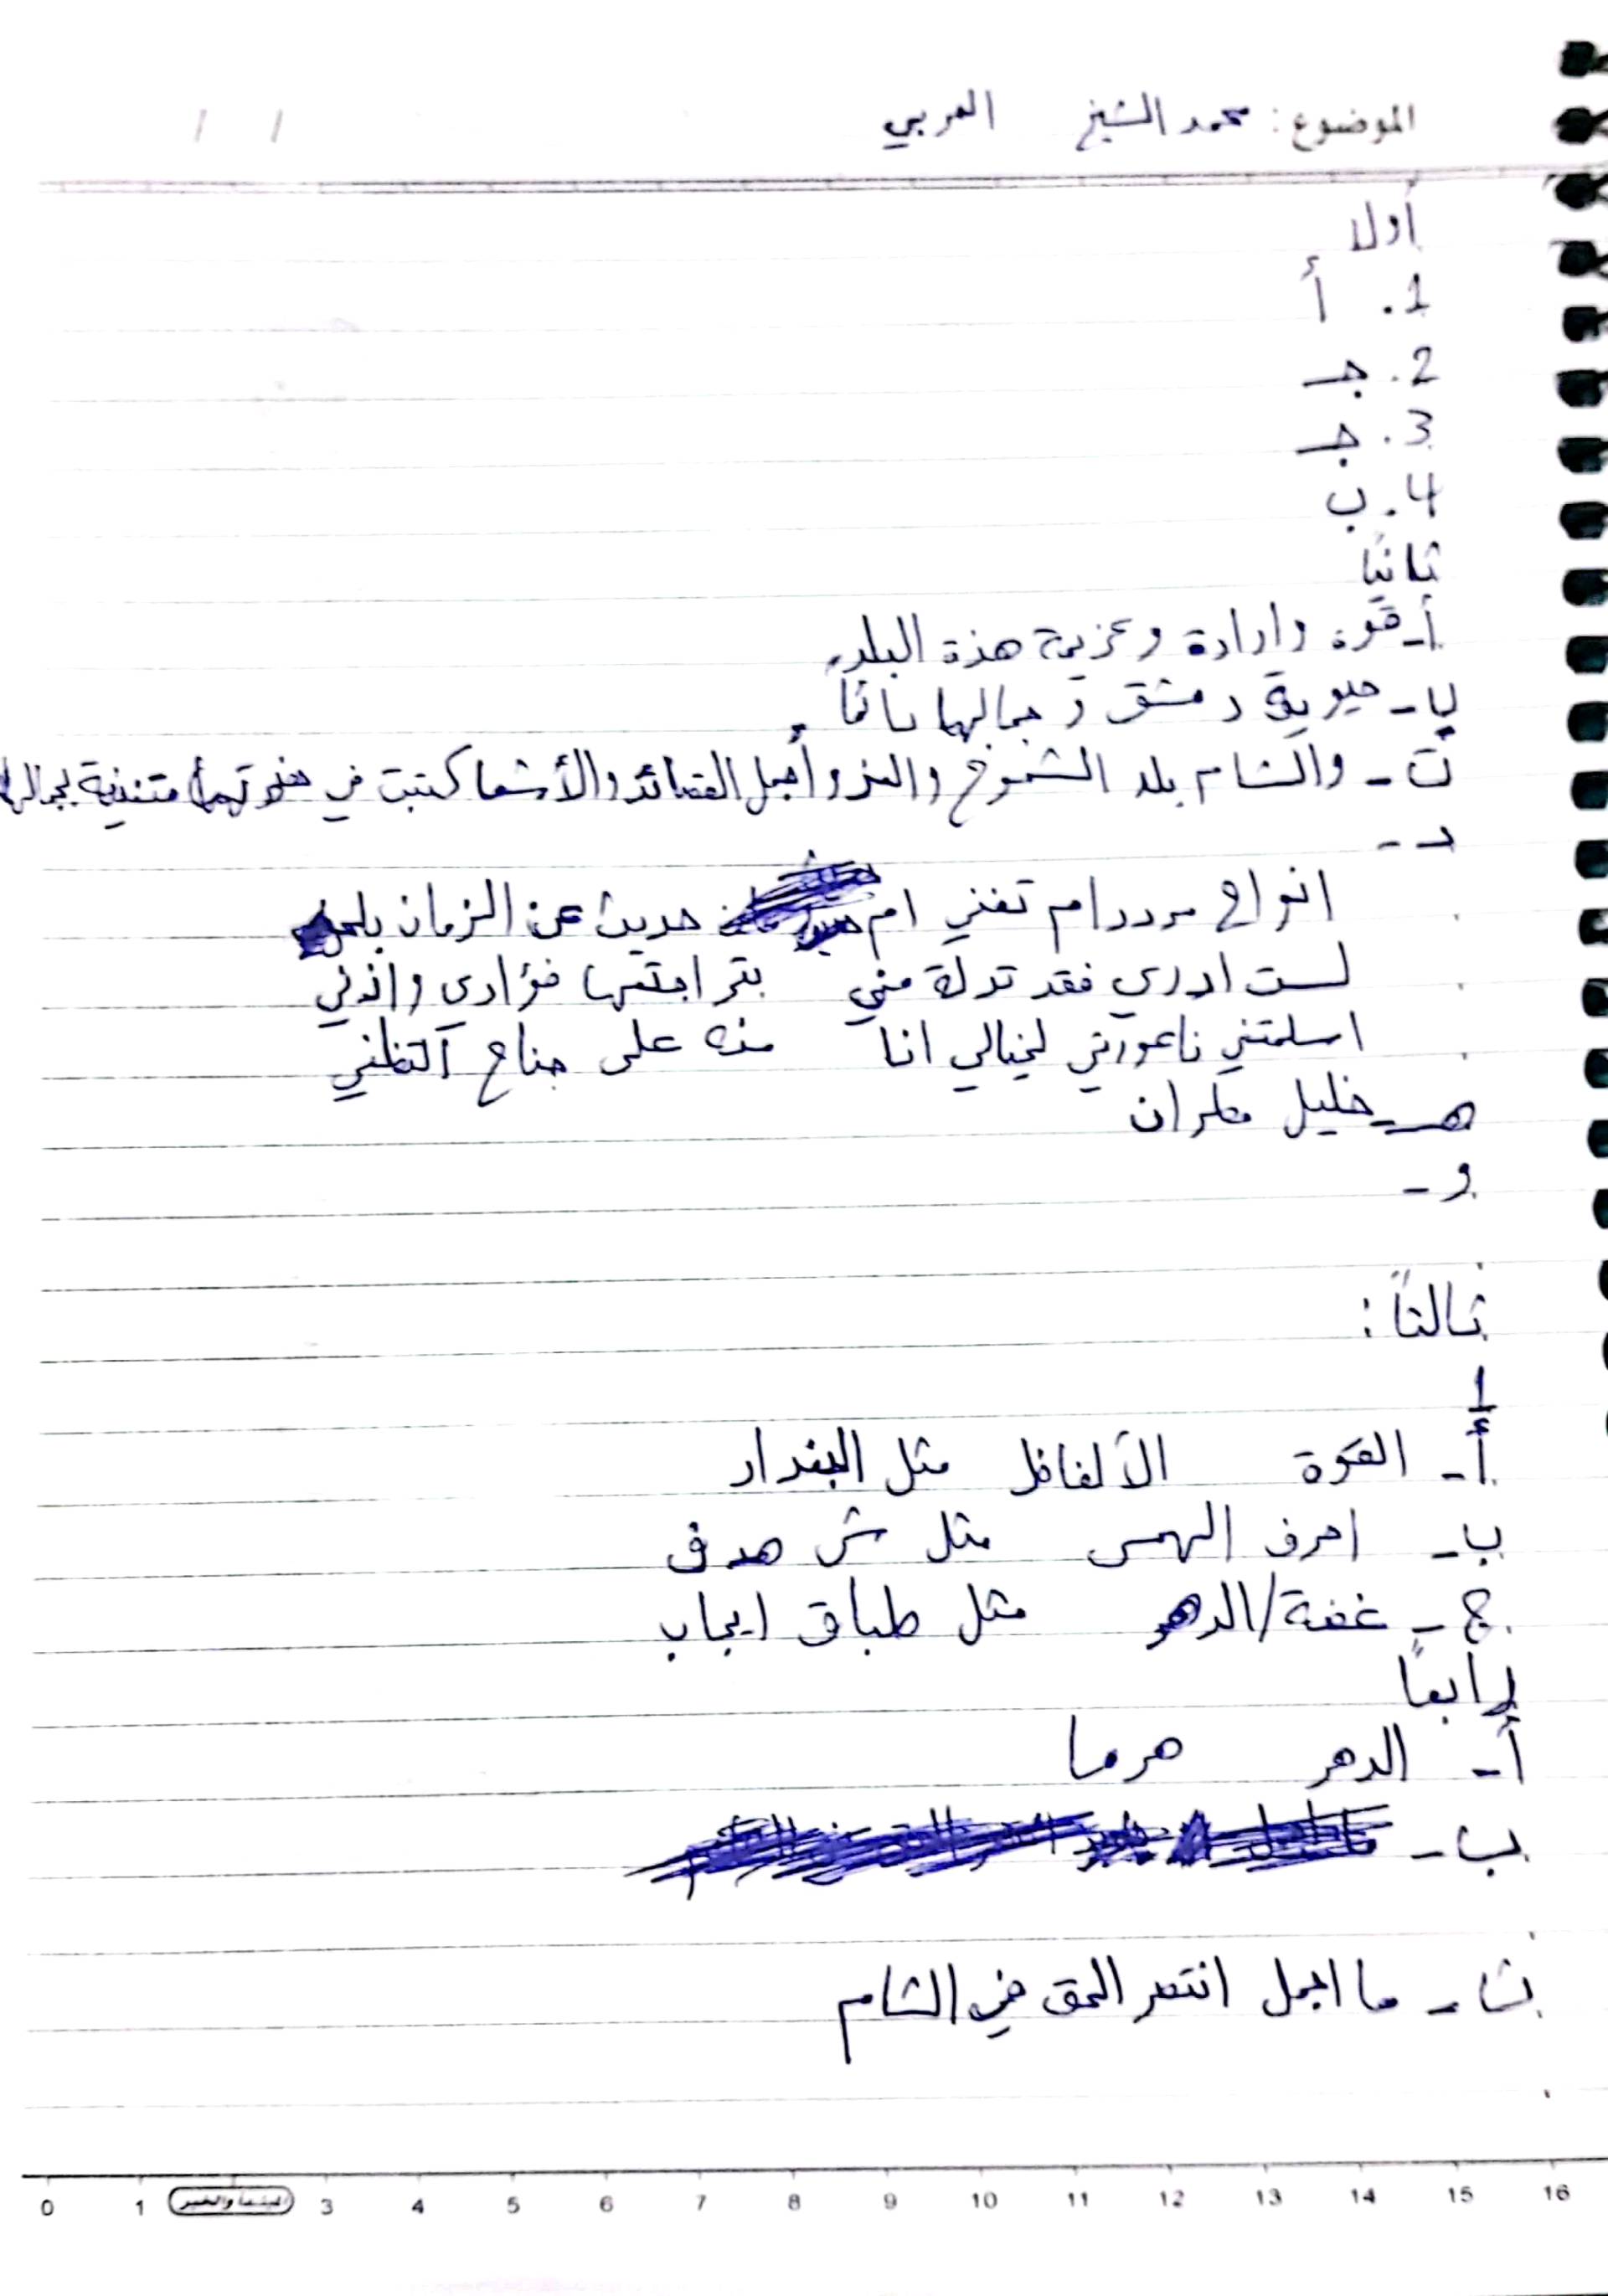 الموضوع: محمد الشيخ العربي / /
أولا
1. أ
2. جـ
3. جـ
4. ب
ثانيًا
أ- قوة وارادة وعزيمة هذة البلد.
ب- حيوية دمشق و جمالها دائماً.
ت- والشام بلد الشموخ والعز وأجمل القصائد والأشعا كتبت في متغنية لجمالها
د-
انواح مردد ام تغني ام حديث عن الزمان
لست ادري فقد تدلة مني بتراجتعها فؤادي واذني
اسلمتني ناعورتي لخيالي انا منه على جناح التظني
هـ- خليل مطران
و-
ثالثاً:
1
أ- القوة الألفاظ مثل
ب- احرف الهمس مثل ش هدف
ج- غفة/الدهر مثل طباق ايجاب
رابعاً
أ- الدهر هرما
ب-
ت- ما اجمل انتصر الحق في الشام
0 1 الميتما والخبر 3 4 5 6 7 8 9 10 11 12 13 14 15 16